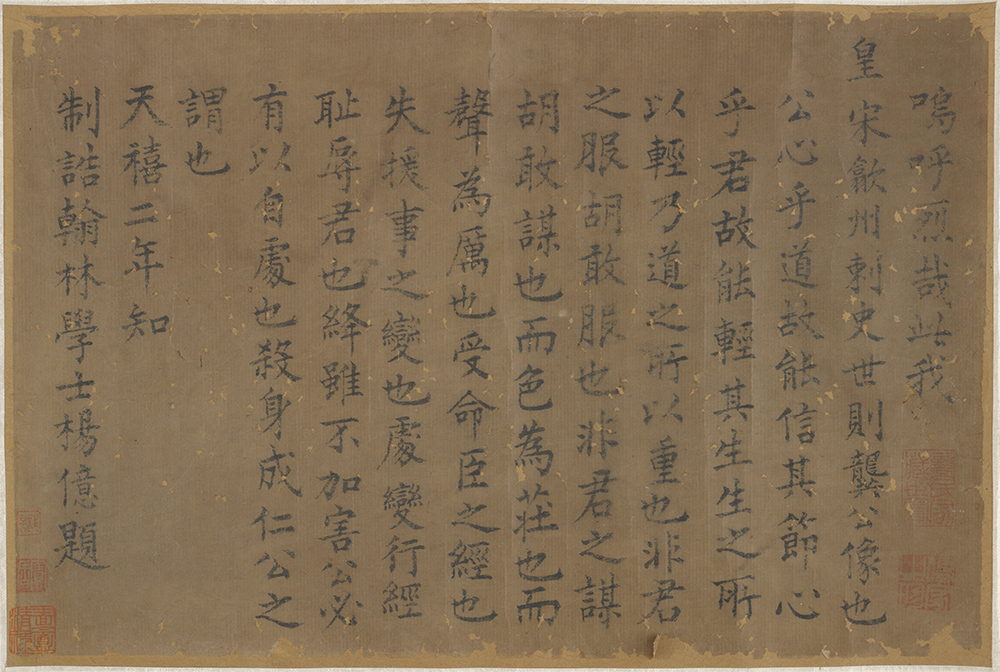 嗚呼烈哉此我
皇宋歙州刺史世則龔公像也
公心乎道故能信其節心
乎君故能輕其生生之所
以輕乃道之所以重也非君
之服胡敢服也非君之謀
胡敢謀也而色為莊也而
聲為厲也受命臣之經也
失援事之變也處變行經
耻辱君也絳雖不加害公必
有以自處也殺身成仁公之
謂也
天禧二年知
制誥翰林學士楊億題